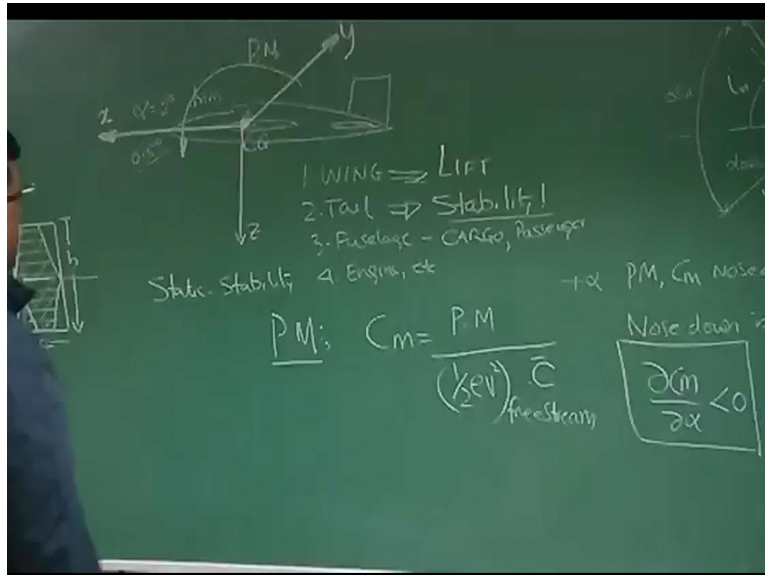 P.M.
y
x
CG
z
1. WING ⇒ LIFT
2. Tail ⇒ Stability!
3. Fuselage - CARGO, Passenger
Static. Stability 4. Engine, etc
h
+α PM, Cm Nose d
Nose down is
PM; Cm = P.M / (½ρv²)freestream . C̄
∂Cm/∂α < 0